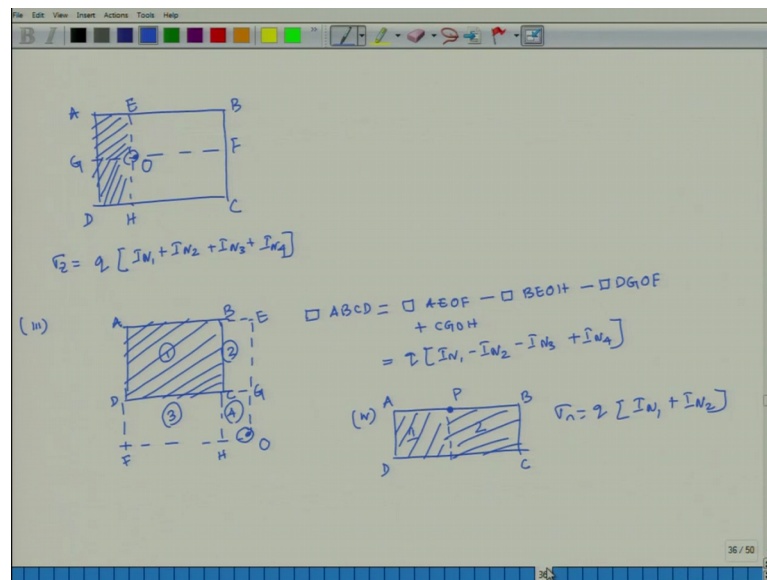 File Edit View Insert Actions Tools Help
B I
A E B
G O F
D H C
σz = q [IN1 + IN2 + IN3 + IN4]
(III)
A B E
① ②
D C G
③ ④
F H O
□ ABCD = □ AEOF - □ BEOH - □ DGOF
+ CGOH
= q [IN1 - IN2 - IN3 + IN4]
(IV)
A P B
1 2
D C
σn = q [IN1 + IN2]
36 / 50
36